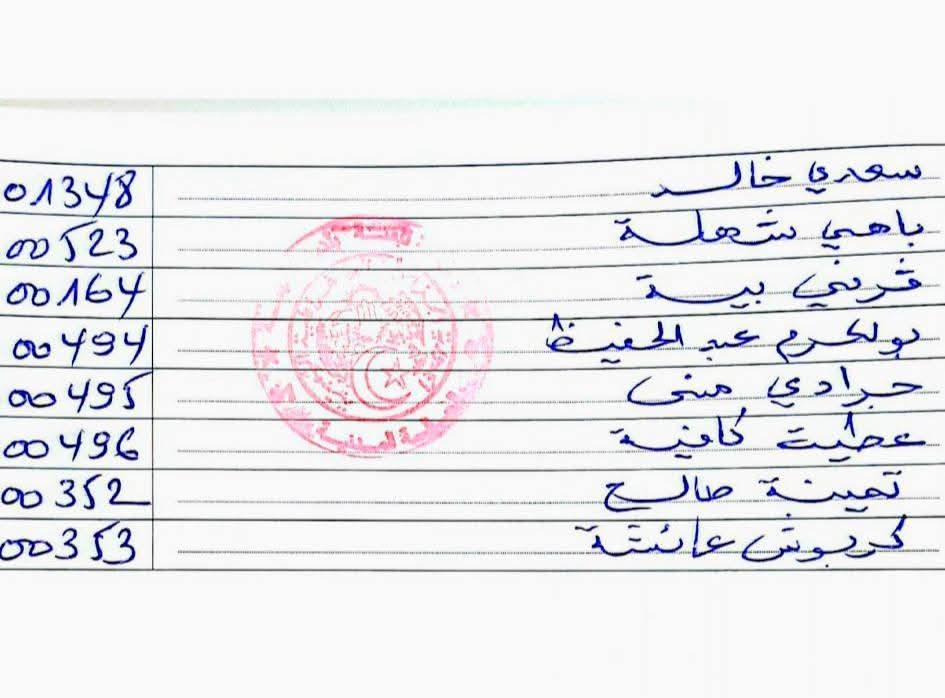 سعدي خالد 01348
باهي شهلة 00523
قرني بية 00164
بولكرم عبد الحفيظ 00494
جرادي منى 00495
عطيت كافية 00496
تمينة صالح 00352
كربوش عائشة 00353